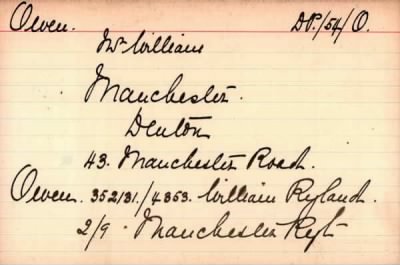 Owen. D.P./54/O.
Mr William
Manchester.
Denton
43. Manchester Road.
Owen. 352131./4353. William Ryland.
2/9. Manchester Regt